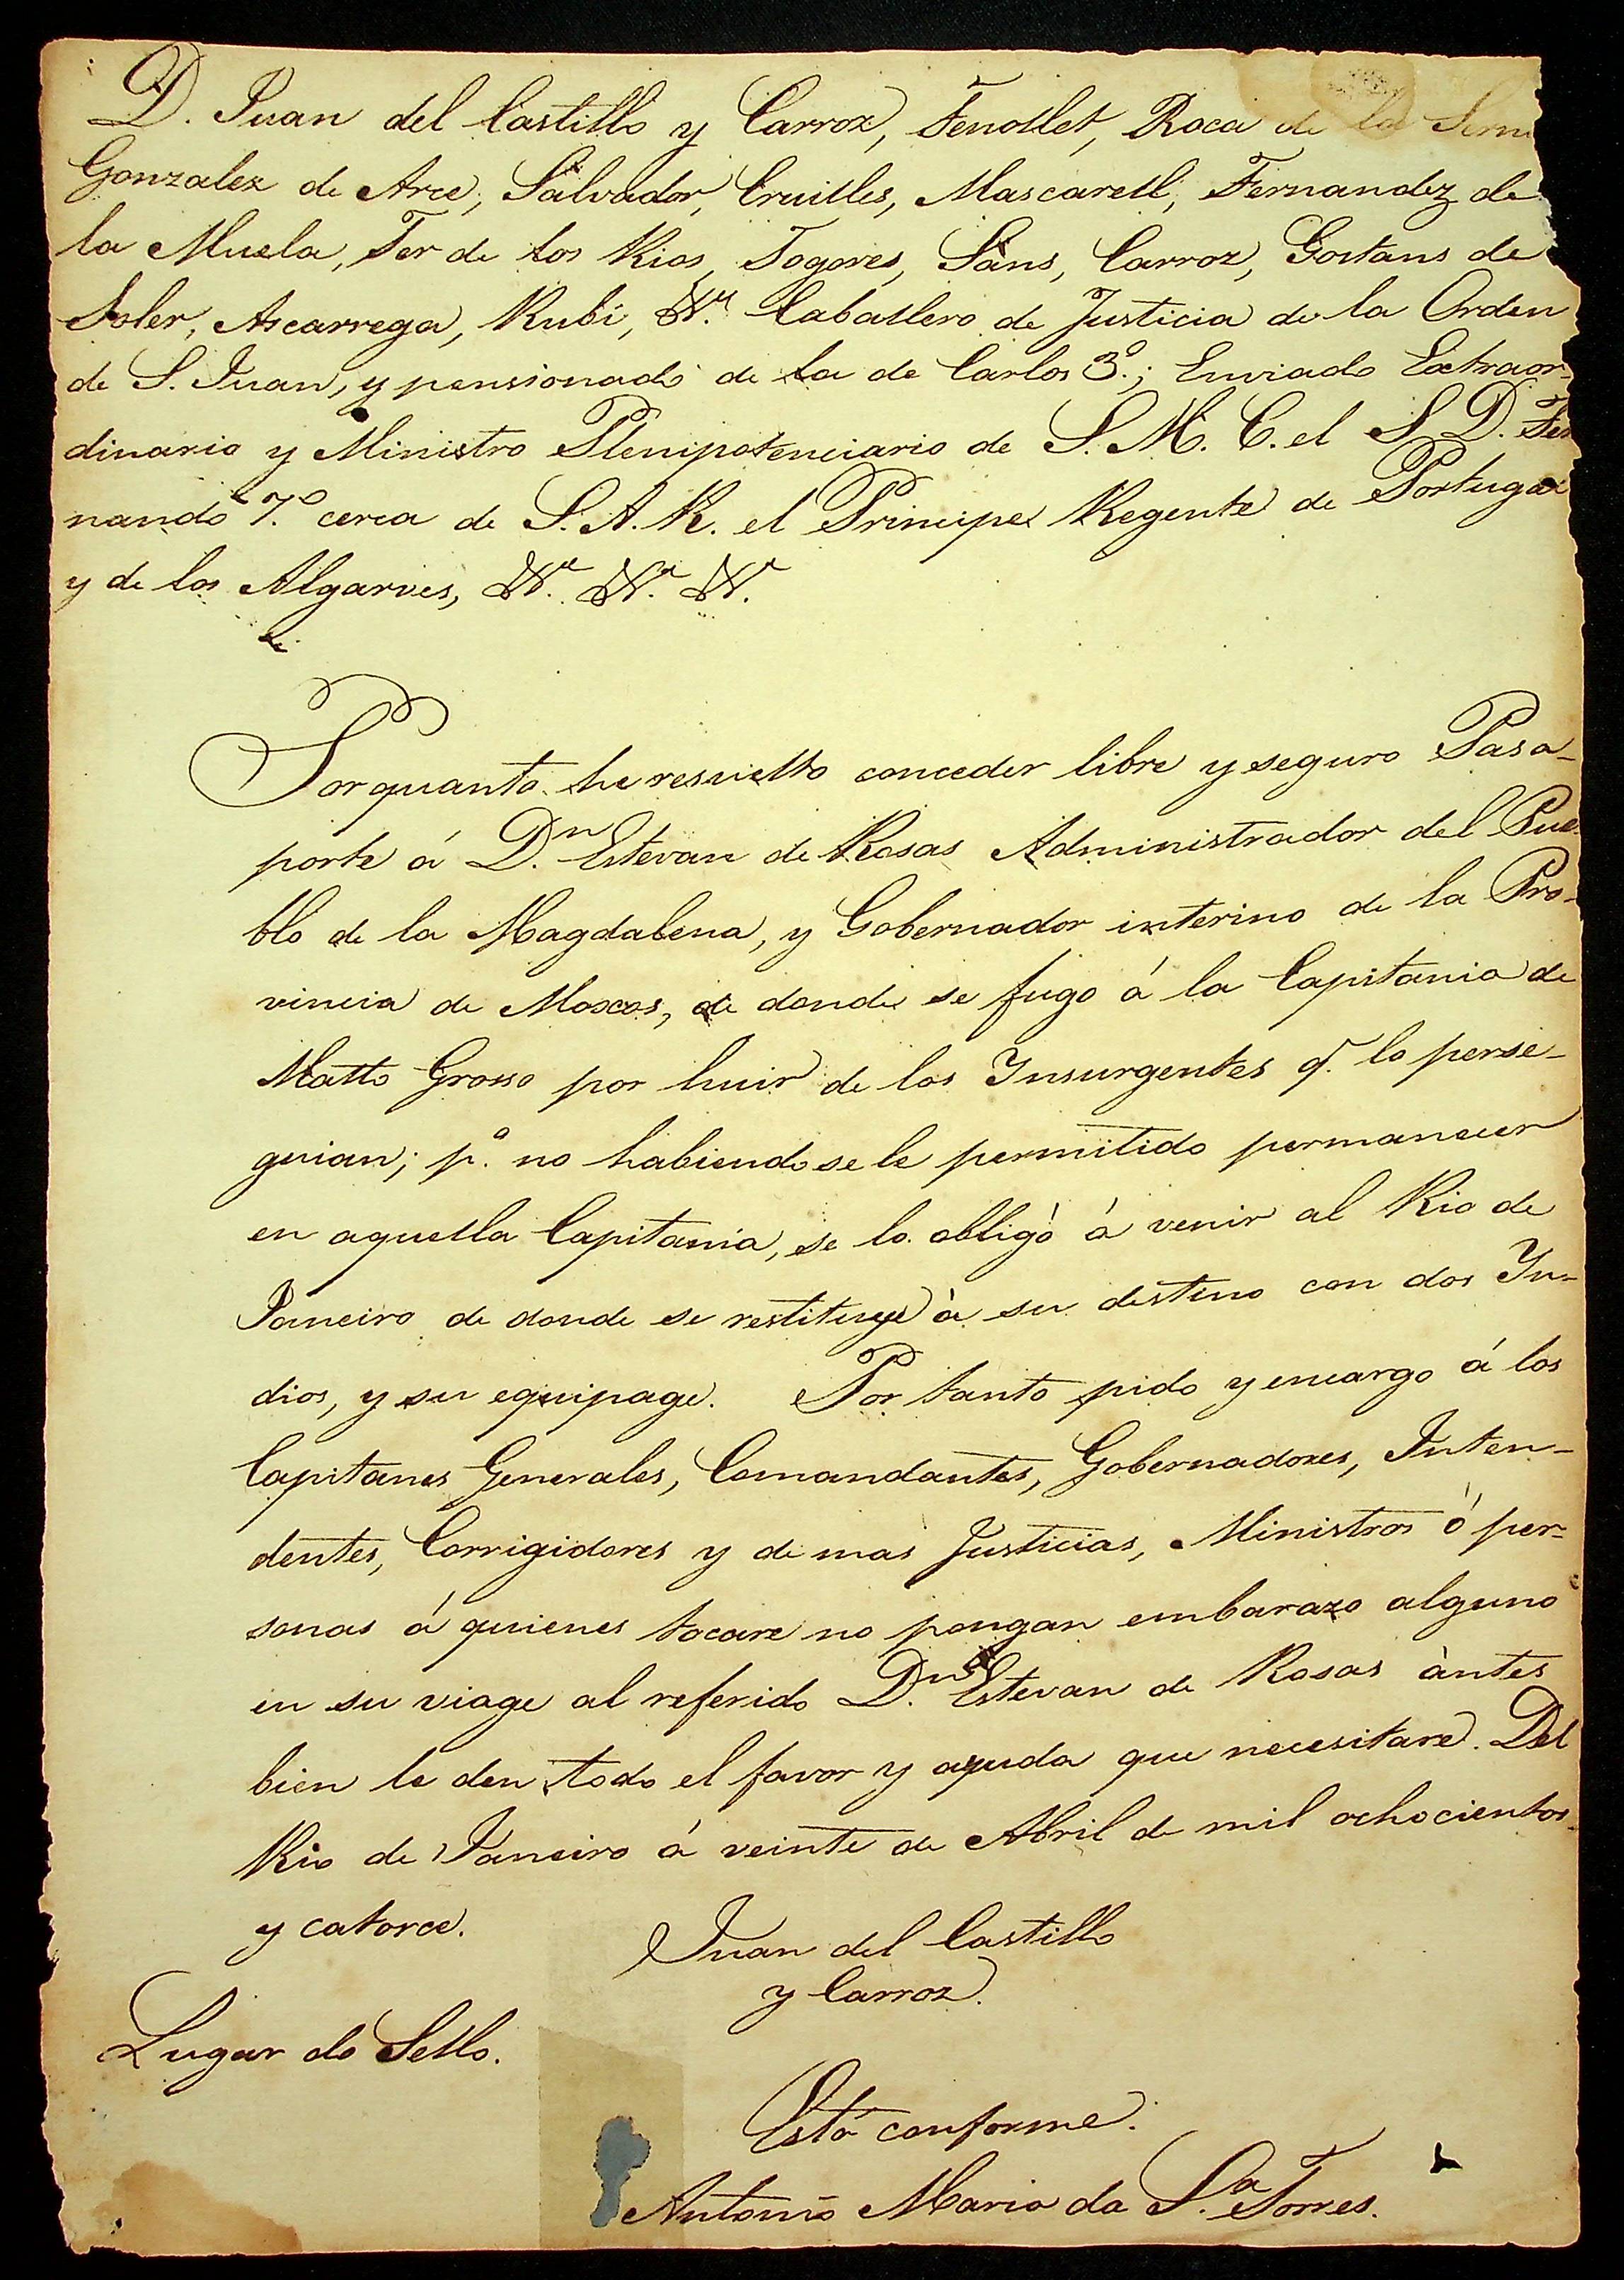 D. Juan del Castillo y Carroz, Fenollet, Roca de la
Gonzalez de Arce, Salvador, Cruilles, Mascarell, Fernandez de
la Muela, Fer de los Rios, Togores, Sans, Carroz, Gostans de
Soler, Ascarrega, Rubi, &a. Caballero de Justicia de la Orden
de S. Juan, y pensionado de la de Carlos 3º.; Enviado Extraor-
dinario y Ministro Plenipotenciario de S. M. C. el S D. Fer
nando 7º. cerca de S. A. R. el Principe Regente de Portugal
y de los Algarves, &a. &a. &a.
Por quanto he resuelto conceder libre y seguro Pasa-
porte á D.n Estevan de Rosas Administrador del Pue-
blo de la Magdalena, y Gobernador interino de la Pro-
vincia de Moxos, de donde se fugo á la Capitania de
Matto Grosso por huir de los Insurgentes q. lo perse-
guian; p.a no habiendosele permitido permanecer
en aquella Capitanía, se lo obligó à venir al Rio de
Janeiro de donde se restituye à su destino con dos In-
dios, y su equipage. Por tanto pido y encargo á los
Capitanes Generales, Comandantes, Gobernadores, Inten-
dentes, Corrigidores y de mas Justicias, Ministros ó per-
sonas á quienes tocare no pongan embarazo alguno
en su viage al referido D.n Estevan de Rosas àntes
bien le den todo el favor y ayuda que necesitare. Del
Rio de Janeiro á veinte de Abril de mil ochocientos
y catorce.
Juan del Castillo
y Carroz.
Lugar do Sello.
Está conforme.
Antonio Maria da S.a Torres.